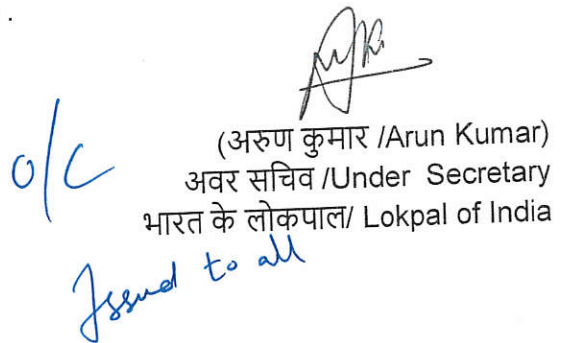 (अरुण कुमार /Arun Kumar)
O/C
अवर सचिव /Under Secretary
भारत के लोकपाल/ Lokpal of India
Issued to all